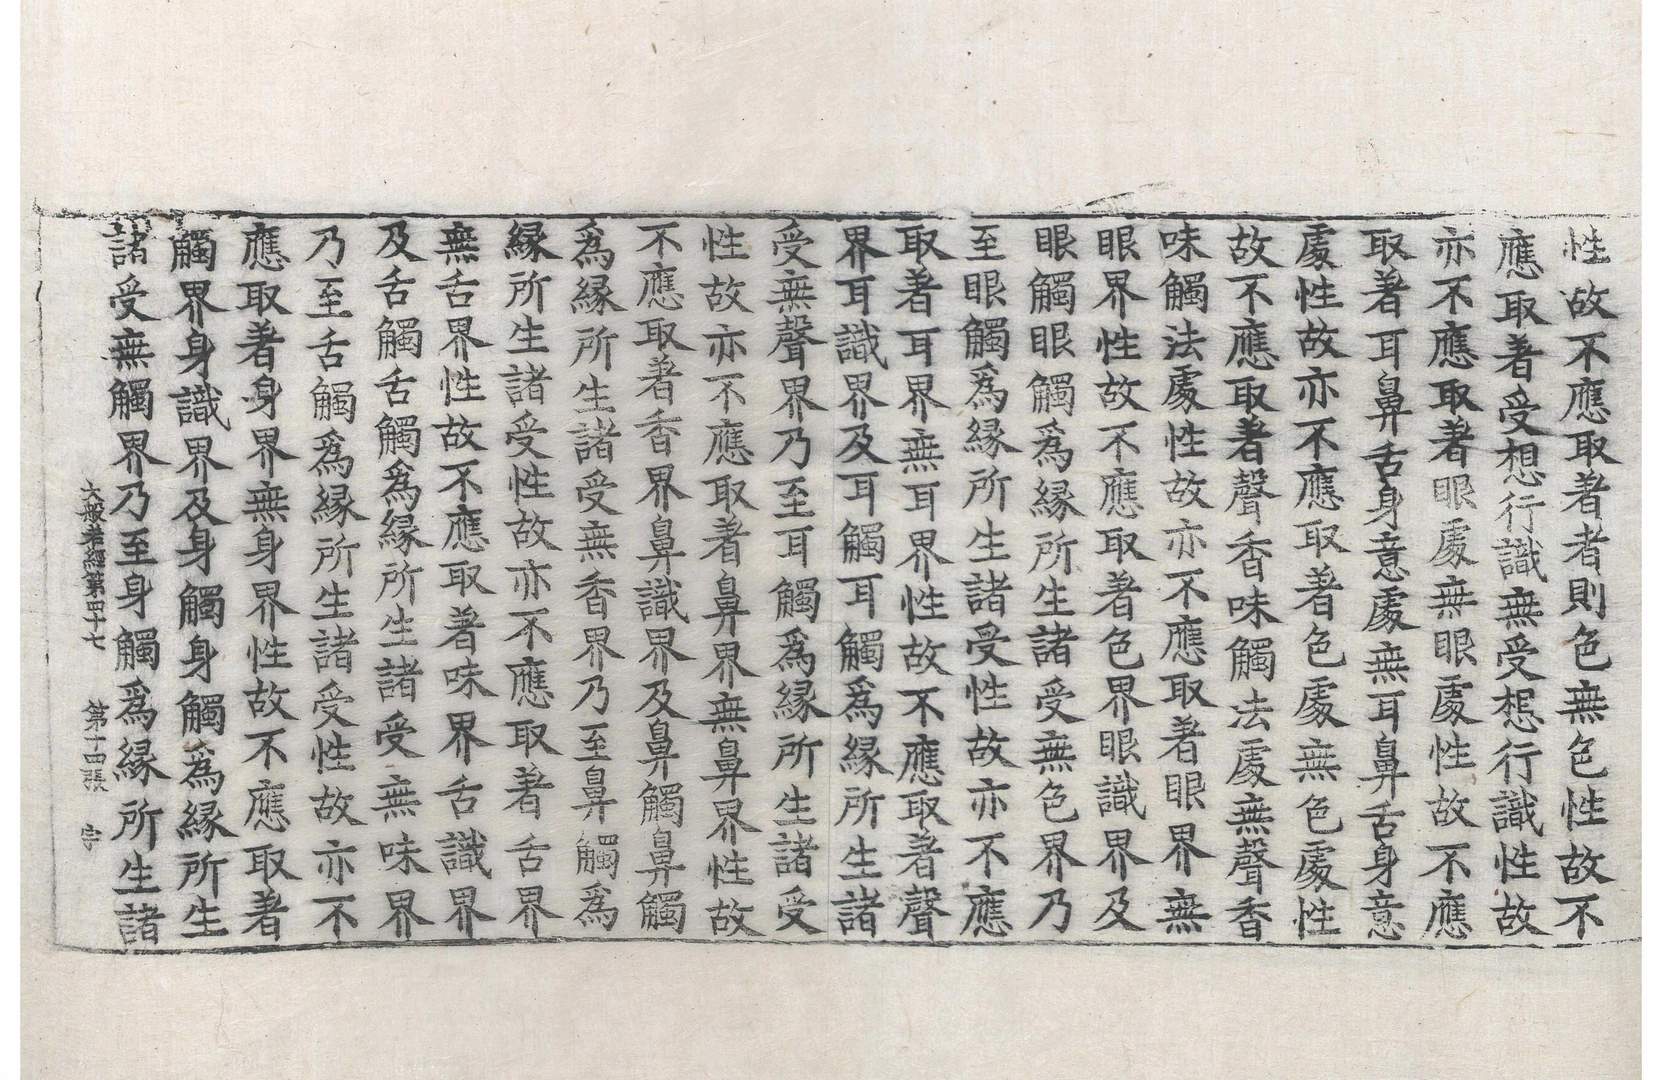 性故不應取著者則色無色性故不
應取著受想行識無受想行識性故
亦不應取著眼處無眼處性故不應
取著耳鼻舌身意處無耳鼻舌身意
處性故亦不應取著色處無色處性
故不應取著聲香味觸法處無聲香
味觸法處性故亦不應取著眼界無
眼界性故不應取著色界眼識界及
眼觸眼觸爲緣所生諸受無色界乃
至眼觸爲緣所生諸受性故亦不應
取著耳界無耳界性故不應取著聲
界耳識界及耳觸耳觸爲緣所生諸
受無聲界乃至耳觸爲緣所生諸受
性故亦不應取著鼻界無鼻界性故
不應取著香界鼻識界及鼻觸鼻觸
爲緣所生諸受無香界乃至鼻觸爲
緣所生諸受性故亦不應取著舌界
無舌界性故不應取著味界舌識界
及舌觸舌觸爲緣所生諸受無味界
乃至舌觸爲緣所生諸受性故亦不
應取著身界無身界性故不應取著
觸界身識界及身觸身觸爲緣所生
諸受無觸界乃至身觸爲緣所生諸
大般若經第四十七 第十四張 宇